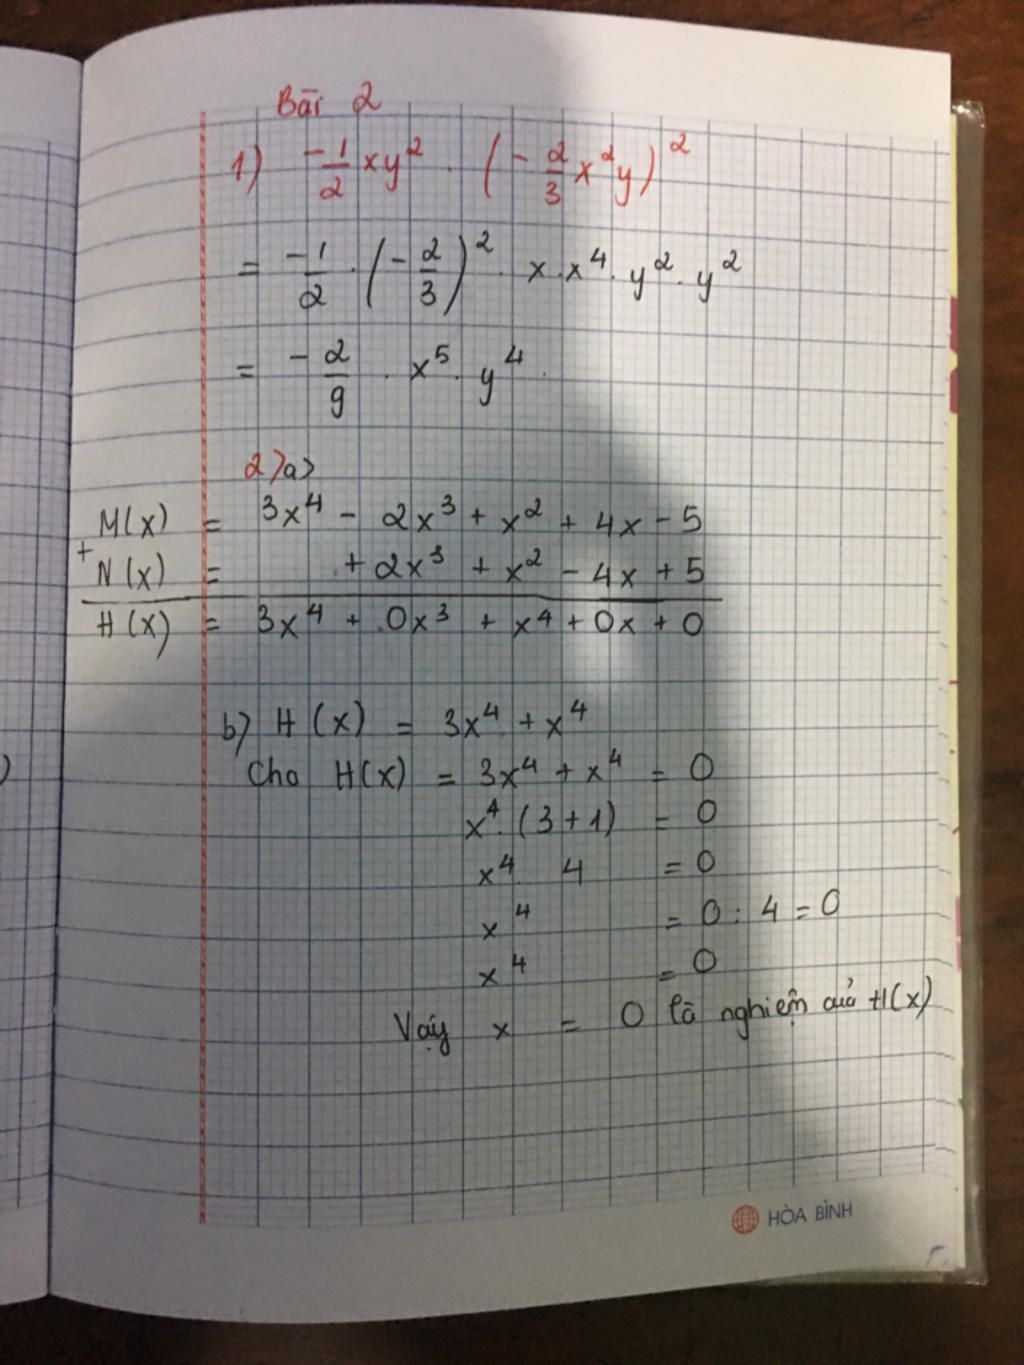 Bài 2
1) -1/2 xy² . (- 2/3 x²y)²
= -1/2 . (- 2/3)² . x . x⁴ . y² . y²
= - 2/9 . x⁵ . y⁴ .
2) a>
M(x) = 3x⁴ - 2x³ + x² + 4x - 5
+
N(x) = + 2x³ + x² - 4x + 5
H(x) = 3x⁴ + 0x³ + x⁴ + 0x + 0
b) H(x) = 3x⁴ + x⁴
Cho H(x) = 3x⁴ + x⁴ = 0
x⁴ . (3 + 1) = 0
x⁴ . 4 = 0
x⁴ = 0 : 4 = 0
x⁴ = 0
Vậy x = 0 là nghiệm của H(x)
HÒA BÌNH